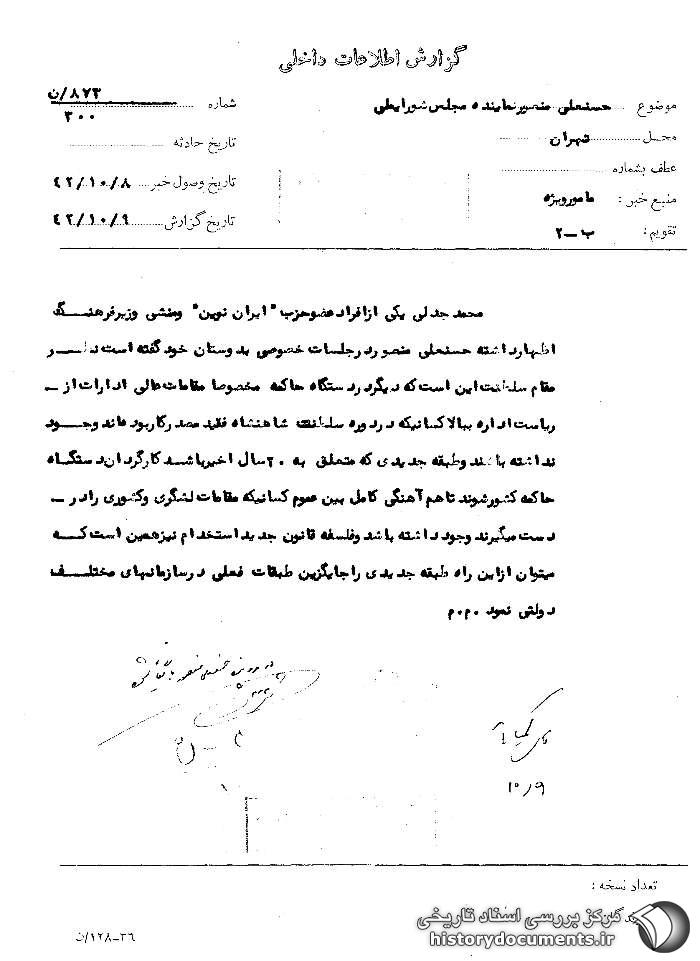 گزارش اطلاعات داخلی
موضوع حسنعلی منصور نماینده مجلس شورایملی
محل تهران
عطف بشماره
منبع خبر : مامور ویژه
تقویم : ب-۲
شماره ۸۷۳/ن
۳۰۰
تاریخ حادثه
تاریخ وصول خبر ۴۲/۱۰/۸
تاریخ گزارش ۴۲/۱۰/۹
محمد جدلی یکی از افراد عضو حزب "ایران نوین" ومنشی وزیر فرهنگ
اظهار داشته حسنعلی منصور در جلسات خصوصی بدوستان خود گفته است نظر
مقام سلطنت این است که دیگر در دستگاه حاکمه مخصوصا مقامات عالی ادارات از -
ریاست اداره ببالا کسانیکه در دوره سلطنت شاهنشاه فقید مصدر کار بوده اند وجود
نداشته باشند وطبقه جدیدی که متعلق به ۲۰ سال اخیر باشد کارگردان دستگاه
حاکمه کشور شوند تا هم آهنگی کامل بین عموم کسانیکه مقامات لشگری وکشوری را در -
دست میگیرند وجود داشته باشد وفلسفه قانون جدید استخدام نیز همین است که
میتوان از این راه طبقه جدیدی را جایگزین طبقات فعلی در سازمانهای مختلف
دولتی نمود .م.م
۱۰/۹
تعداد نسخه :
۳۶-۱۲۸/ن
مرکز بررسی اسناد تاریخی
historydocuments.ir